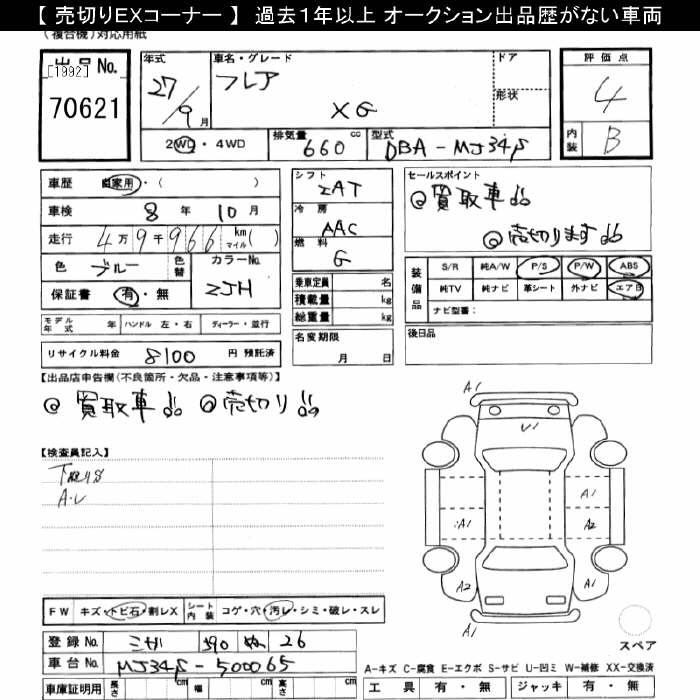 【 売切りEXコーナー 】 過去1年以上 オークション出品歴がない車両
(複合機)対応用紙
出品No.
[1992]
70621
年式
27/9月
車名・グレード
フレア
XG
ドア
形状
評価点
4
内装
B
2WD・4WD
排気量 660 cc
型式 DBA-MJ34S
車歴 自家用・( )
車検 8年 10月
走行 4万9千966 km マイル( )
色 ブルー 色替 カラーNo. ZJH
保証書 有・無
モデル年式 年 ハンドル 左・右 ディーラー・並行
リサイクル料金 8100 円 預託済
シフト
IAT
冷房
AAC
燃料
G
乗車定員 名
積載量 kg
総重量 kg
名変期限
月 日
セールスポイント
◎買取車
◎売切ります
装備品
S/R 純A/W P/S P/W ABS
純TV 純ナビ 革シート 外ナビ エアB
ナビ型番:
後日品
【出品店申告欄(不良箇所・欠品・注意事項等)】
◎買取車 ◎売切り
【検査員記入】
下廻りS
A・U
FW キズ・トビ石・割レX シート内装 コゲ・穴・汚レ・シミ・破レ・スレ
登録No. 590 26
車台No. MJ34S-500065
車庫証明用 長さ cm 幅 cm 高さ cm
A1
U1
A1
A1
A2
A2
A1
A1
スペア
A-キズ C-腐食 E-エクボ S-サビ U-凹ミ W-補修 XX-交換済
工具 有・無 ジャッキ 有・無